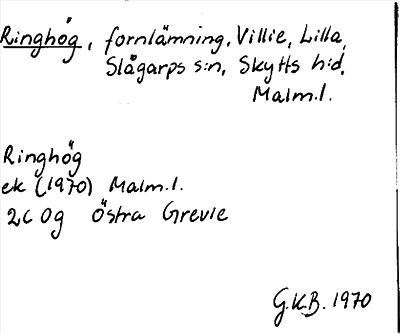 Ringhög, fornlämning, Villie, Lilla,
Slågarps s:n, Skytts h:d,
Malm.l.
Ringhög
ek (1970) Malm.l.
2C 0g Östra Grevie
G.K.B. 1970